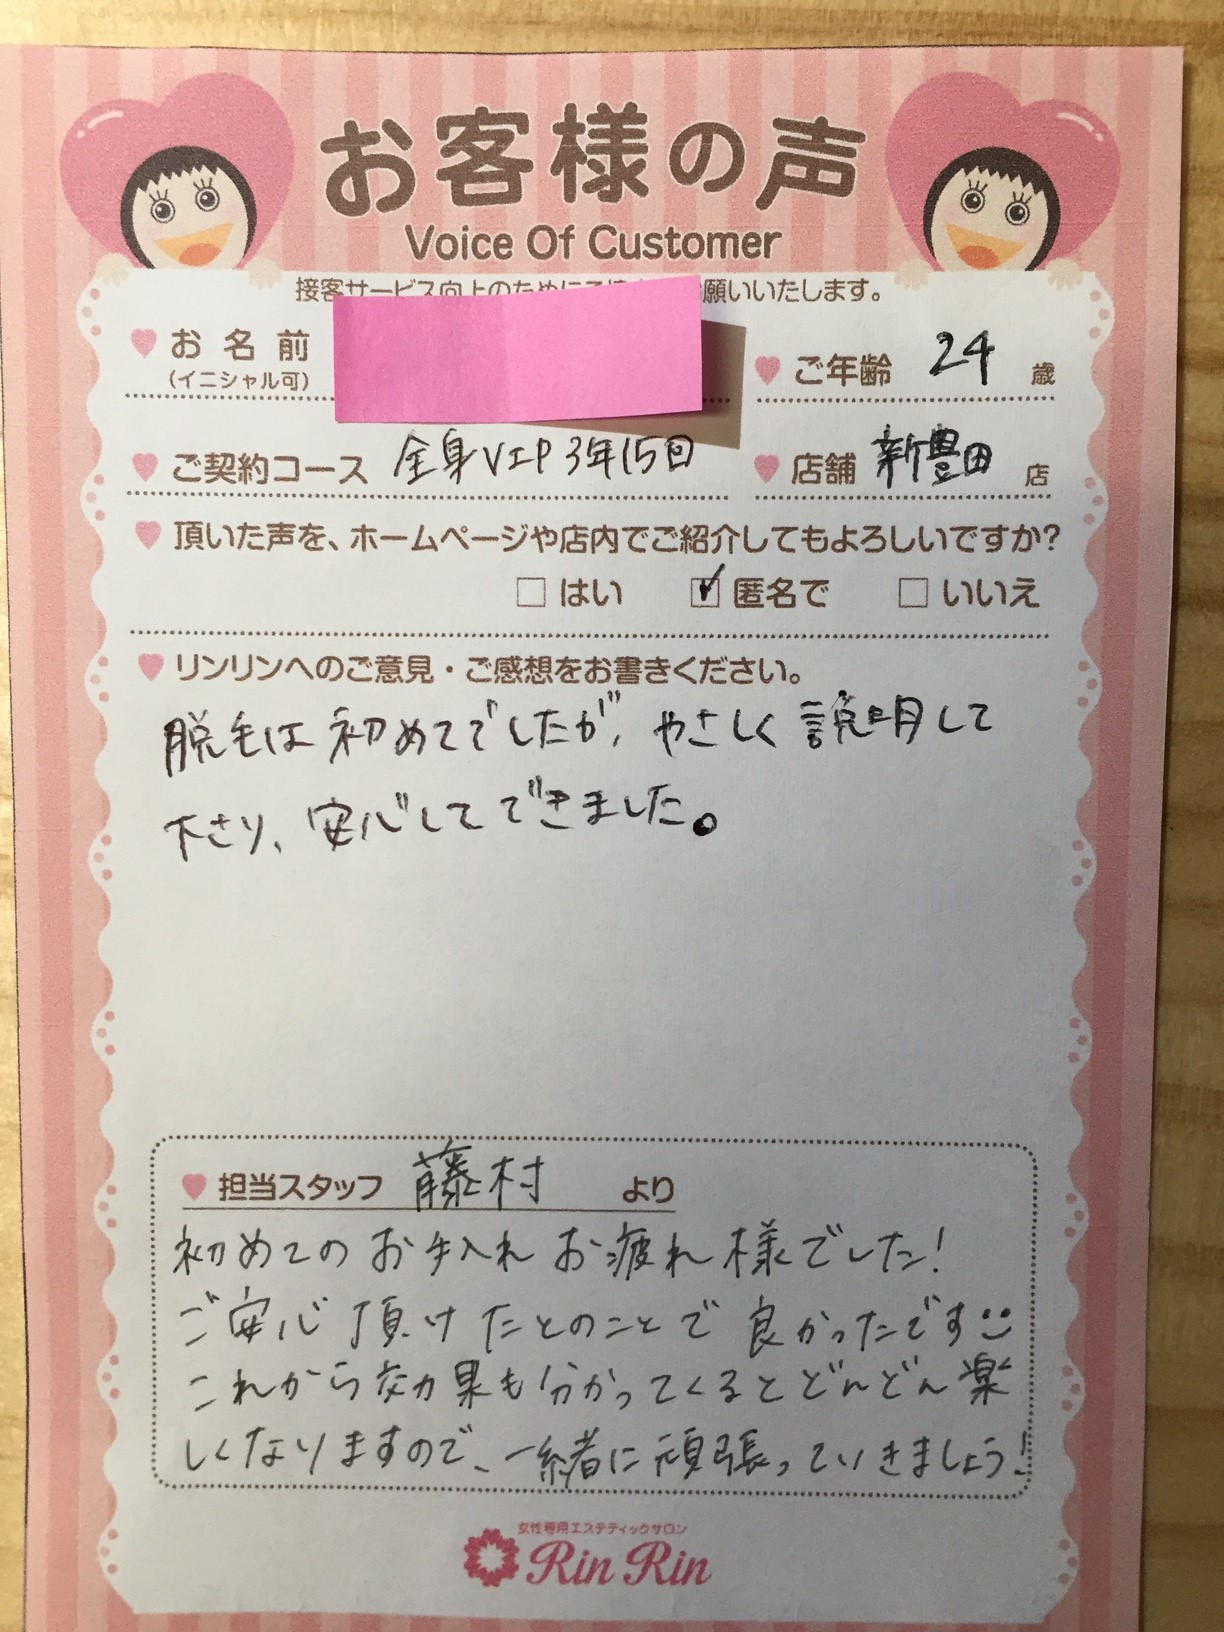 お客様の声
Voice Of Customer
接客サービス向上のために 願いいたします。
お名前
(イニシャル可)
ご年齢 24 歳
ご契約コース 全身VIP 3年15回
店舗 新豊田 店
頂いた声を、ホームページや店内でご紹介してもよろしいですか?
はい 匿名で いいえ
リンリンへのご意見・ご感想をお書きください。
脱毛は初めてでしたが、やさしく説明して
下さり、安心してできました。
担当スタッフ 藤村 より
初めてのお手入れお疲れ様でした!
ご安心頂けたとのことで良かったです
これから効果も分かってくるとどんどん楽
しくなりますので、一緒に頑張っていきましょう!
女性専用エステティックサロン
Rin Rin